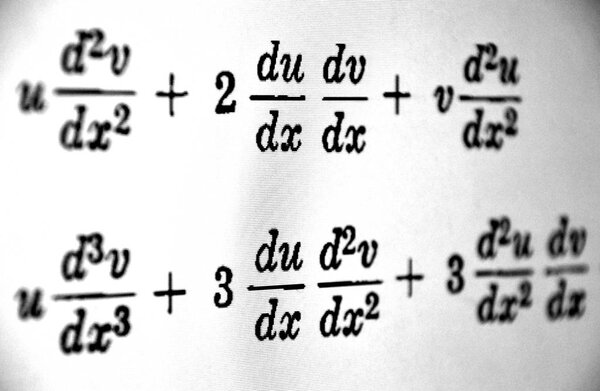 u d²v/dx² + 2 du/dx dv/dx + v d²u/dx²
u d³v/dx³ + 3 du/dx d²v/dx² + 3 d²u/dx² dv/dx